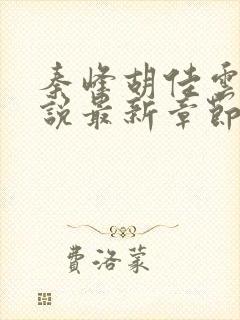 秦峰胡佳雲
說最新章節
費洛蒙